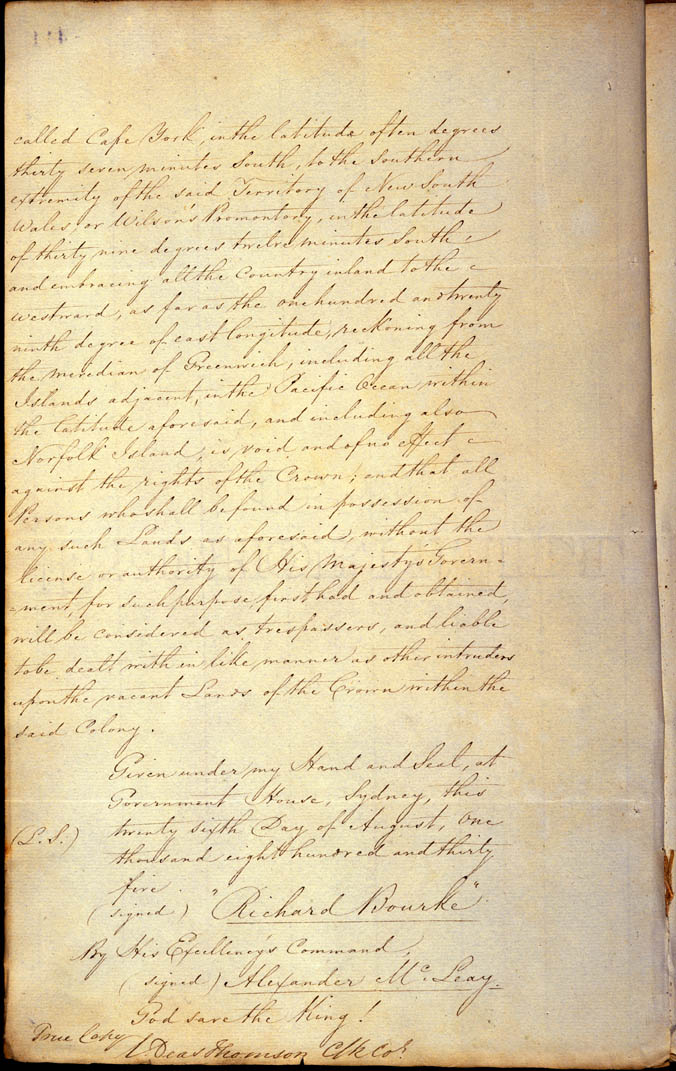 called Cape York, in the latitude of ten degrees
thirty seven minutes South, to the Southern
extremity of the said Territory of New South
Wales, or Wilson's Promontory, in the latitude
of thirty nine degrees twelve minutes South,
and embracing all the Country inland to the
westward, as far as the one hundred and twenty
ninth degree of east longitude, reckoning from
the meridian of Greenwich, including all the
Islands adjacent, in the Pacific Ocean within
the latitude aforesaid, and including also
Norfolk Island, is void and of no effect
against the rights of the Crown; and that all
Persons who shall be found in possession of
any such Lands as aforesaid, without the
license or authority of His Majesty's Govern-
-ment, for such purpose first had and obtained,
will be considered as trespassers, and liable
to be dealt with in like manner as other intruders
upon the vacant Lands of the Crown within the
said Colony.
Given under my Hand and Seal, at
Government House, Sydney, this
(L.S.) twenty sixth Day of August, One
thousand eight hundred and thirty
five.
(signed) "Richard Bourke"
By His Excellency's Command,
(signed) Alexander McLeay.
God save the King!
True Copy
Deas Thomson